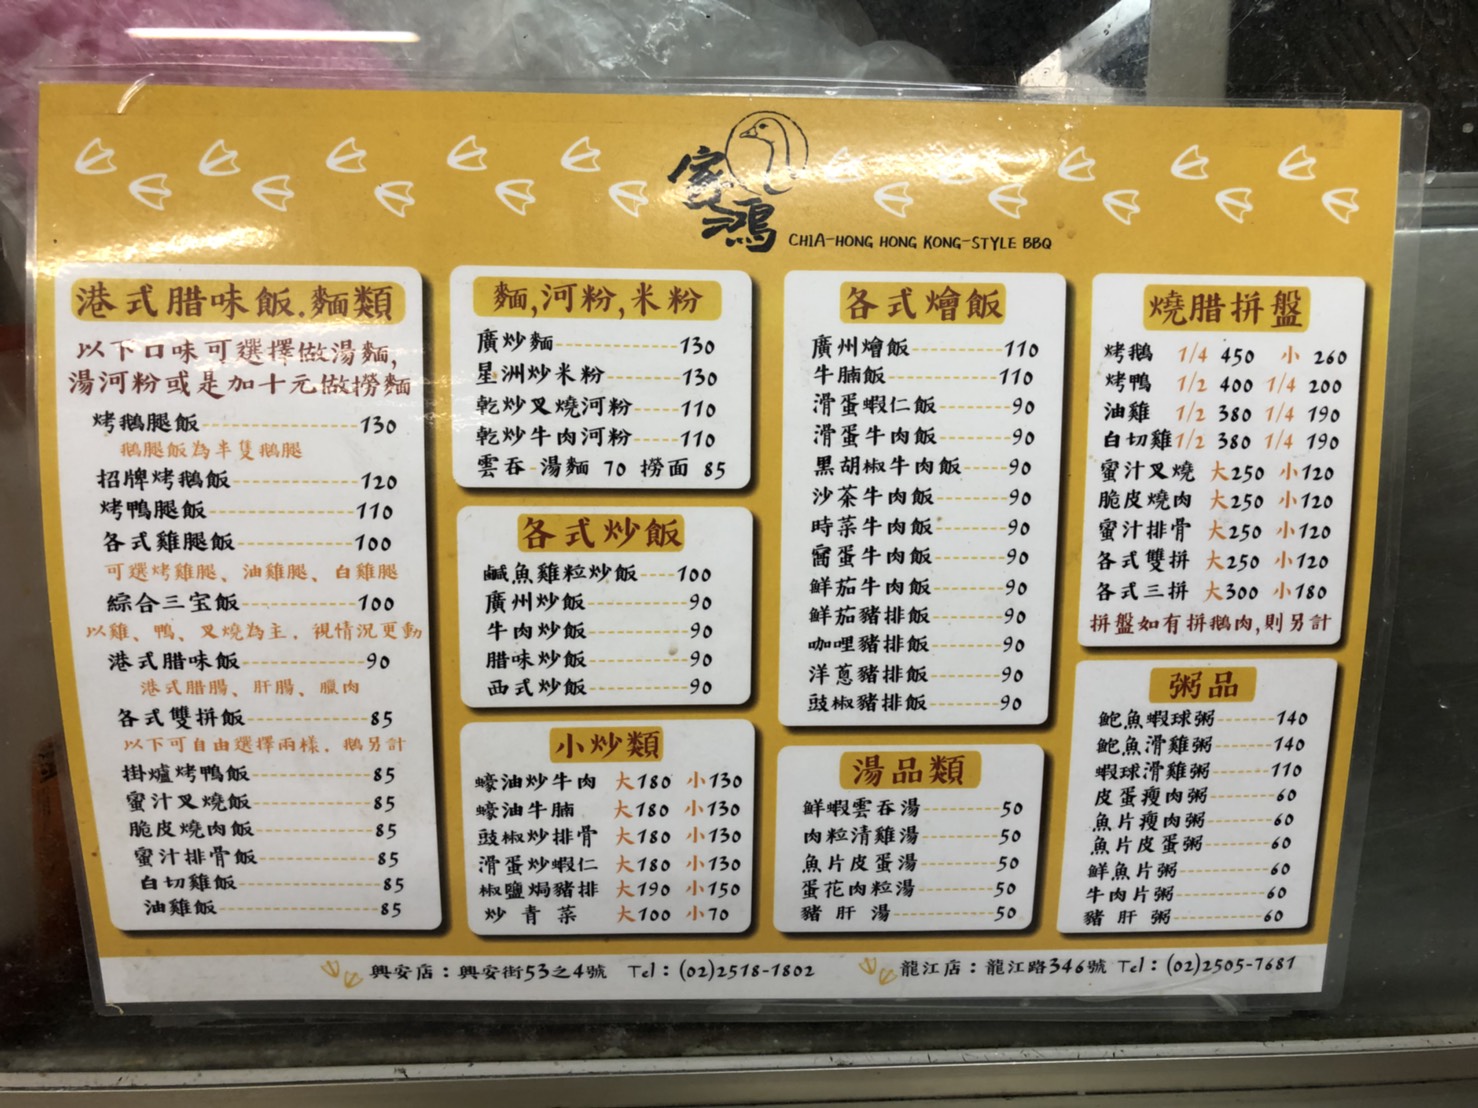 家鴻
CHIA-HONG HONG KONG-STYLE BBQ
港式腊味飯.麵類
以下口味可選擇做湯麵,
湯河粉或是加十元做撈麵
烤鵝腿飯 130
鵝腿飯為半隻鵝腿
招牌烤鵝飯 120
烤鴨腿飯 110
各式雞腿飯 100
可選烤雞腿、油雞腿、白雞腿
綜合三宝飯 100
以雞、鴨、叉燒為主，視情況更動
港式腊味飯 90
港式腊腸、肝腸、臘肉
各式雙拼飯 85
以下可自由選擇兩樣，鵝另計
掛爐烤鴨飯 85
蜜汁叉燒飯 85
脆皮燒肉飯 85
蜜汁排骨飯 85
白切雞飯 85
油雞飯 85
麵,河粉,米粉
廣炒麵 130
星洲炒米粉 130
乾炒叉燒河粉 110
乾炒牛肉河粉 110
雲吞 湯麵 70 撈面 85
各式炒飯
鹹魚雞粒炒飯 100
廣州炒飯 90
牛肉炒飯 90
腊味炒飯 90
西式炒飯 90
小炒類
蠔油炒牛肉 大180 小130
蠔油牛腩 大180 小130
豉椒炒排骨 大180 小130
滑蛋炒蝦仁 大180 小130
椒鹽焗豬排 大190 小150
炒青菜 大100 小70
各式燴飯
廣州燴飯 110
牛腩飯 110
滑蛋蝦仁飯 90
滑蛋牛肉飯 90
黑胡椒牛肉飯 90
沙茶牛肉飯 90
時菜牛肉飯 90
窩蛋牛肉飯 90
鮮茄牛肉飯 90
鮮茄豬排飯 90
咖哩豬排飯 90
洋蔥豬排飯 90
豉椒豬排飯 90
湯品類
鮮蝦雲吞湯 50
肉粒清雞湯 50
魚片皮蛋湯 50
蛋花肉粒湯 50
豬肝湯 50
燒腊拼盤
烤鵝 1/4 450 小 260
烤鴨 1/2 400 1/4 200
油雞 1/2 380 1/4 190
白切雞 1/2 380 1/4 190
蜜汁叉燒 大250 小120
脆皮燒肉 大250 小120
蜜汁排骨 大250 小120
各式雙拼 大250 小120
各式三拼 大300 小180
拼盤如有拼鵝肉,則另計
粥品
鮑魚蝦球粥 140
鮑魚滑雞粥 140
蝦球滑雞粥 110
皮蛋瘦肉粥 60
魚片瘦肉粥 60
魚片皮蛋粥 60
鮮魚片粥 60
牛肉片粥 60
豬肝粥 60
興安店：興安街53之4號 Tel：(02)2518-1802
龍江店：龍江路346號 Tel：(02)2505-7681